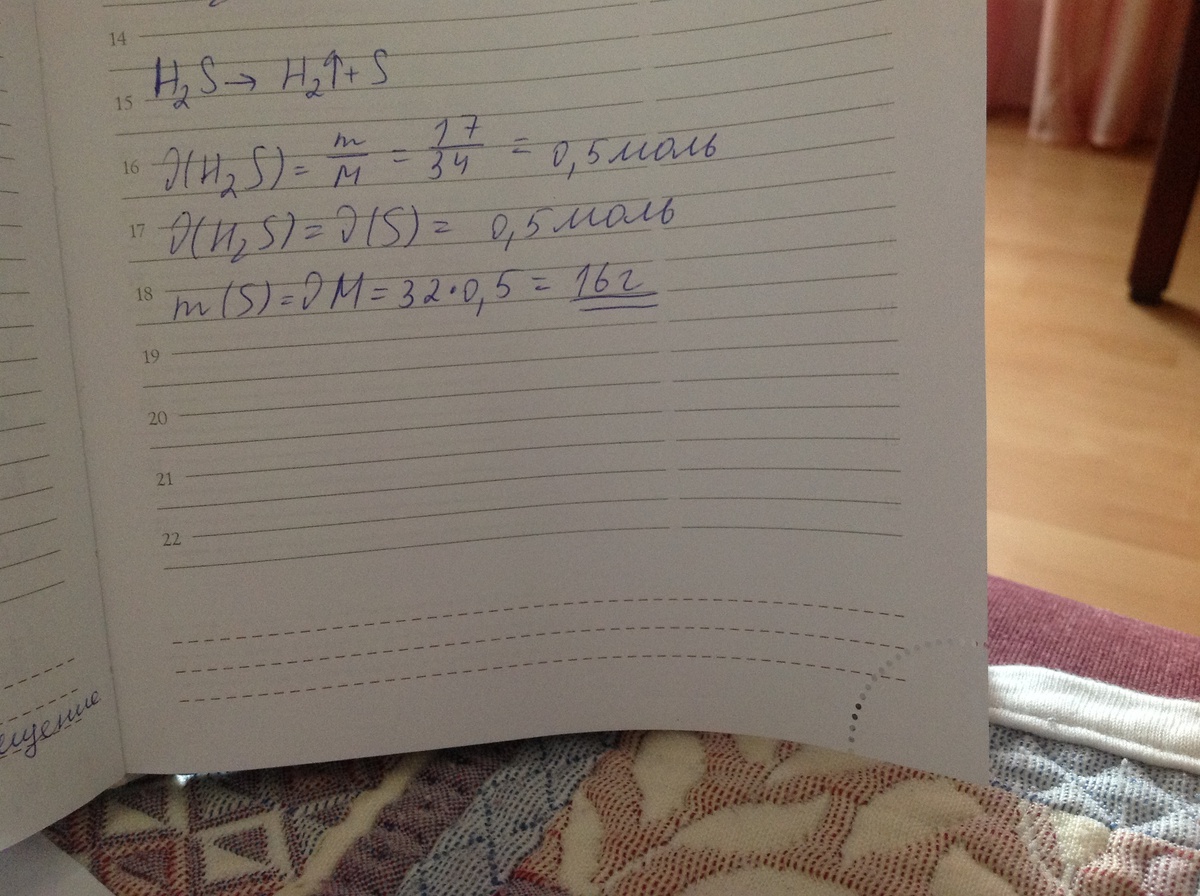 14
H₂S → H₂↑ + S
15
16 ∂(H₂S) = m/M = 17/34 = 0,5 моль
17 ∂(H₂S) = ∂(S) = 0,5 моль
18 m(S) = ∂M = 32·0,5 = 16 г
19
20
21
22